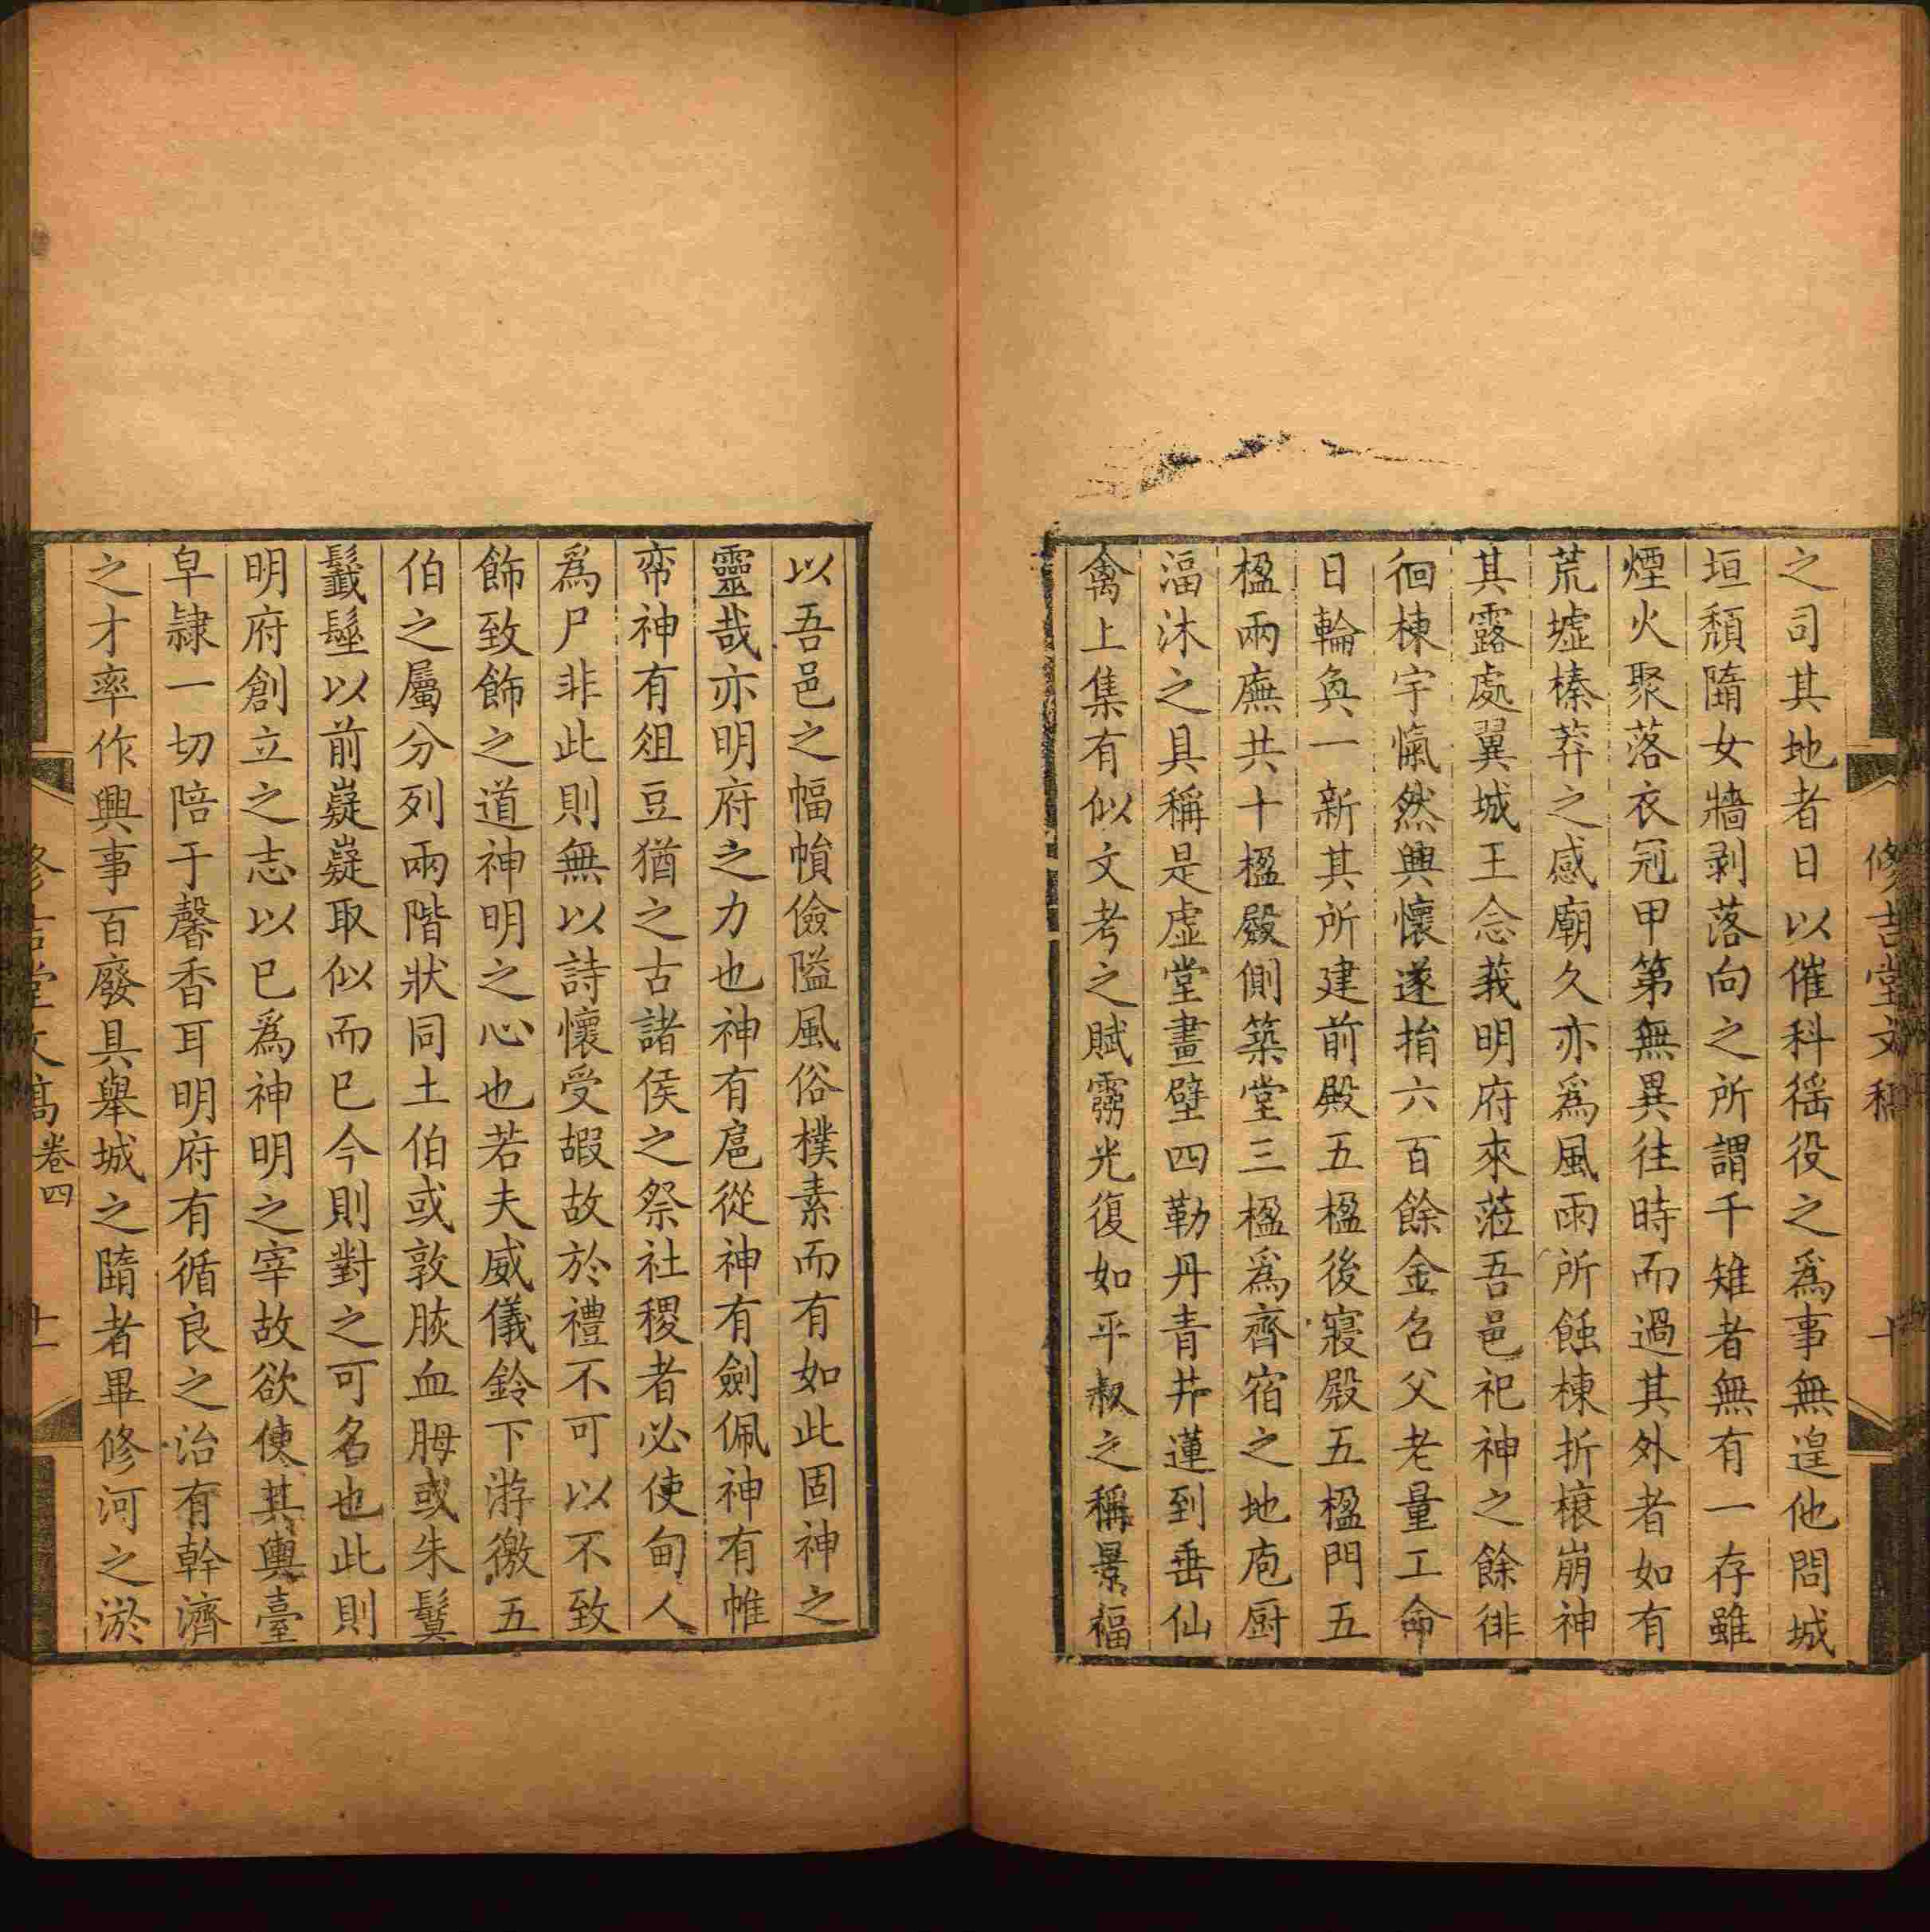 修吉堂文稿
十
之司其地者日以催科徭役之爲事無遑他問城
垣頹隋女牆剥落向之所謂千雉者無有一存雖
煙火聚落衣冠甲第無異往時而過其外者如有
荒墟榛莽之感廟久亦爲風雨所蝕棟折榱崩神
其露處翼城王念莪明府來蒞吾邑祀神之餘徘
徊棟宇愾然興懷遂捐六百餘金召父老量工命
日輪奐一新其所建前殿五楹後寢殿五楹門五
楹兩廡共十楹殿側築堂三楹爲齊宿之地庖厨
湢沐之具稱是虛堂畫壁四勒丹青井蓮到垂仙
禽上集有似文考之賦靈光復如平叔之稱景福
以吾邑之幅幘儉隘風俗樸素而有如此固神之
靈哉亦明府之力也神有扈從神有劍佩神有帷
帟神有俎豆猶之古諸侯之祭社稷者必使甸人
爲尸非此則無以詩懷受嘏故於禮不可以不致
飾致飾之道神明之心也若夫威儀鈴下游徼五
伯之屬分列兩階狀同土伯或敦脄血脢或朱鬒
鬣髽以前嶷嶷取似而已今則對之可名也此則
明府創立之志以已爲神明之宰故欲使其輿臺
皁隷一切陪于馨香耳明府有循良之治有幹濟
之才率作興事百廢具舉城之隋者畢修河之淤
修吉堂文稿 卷四
十一